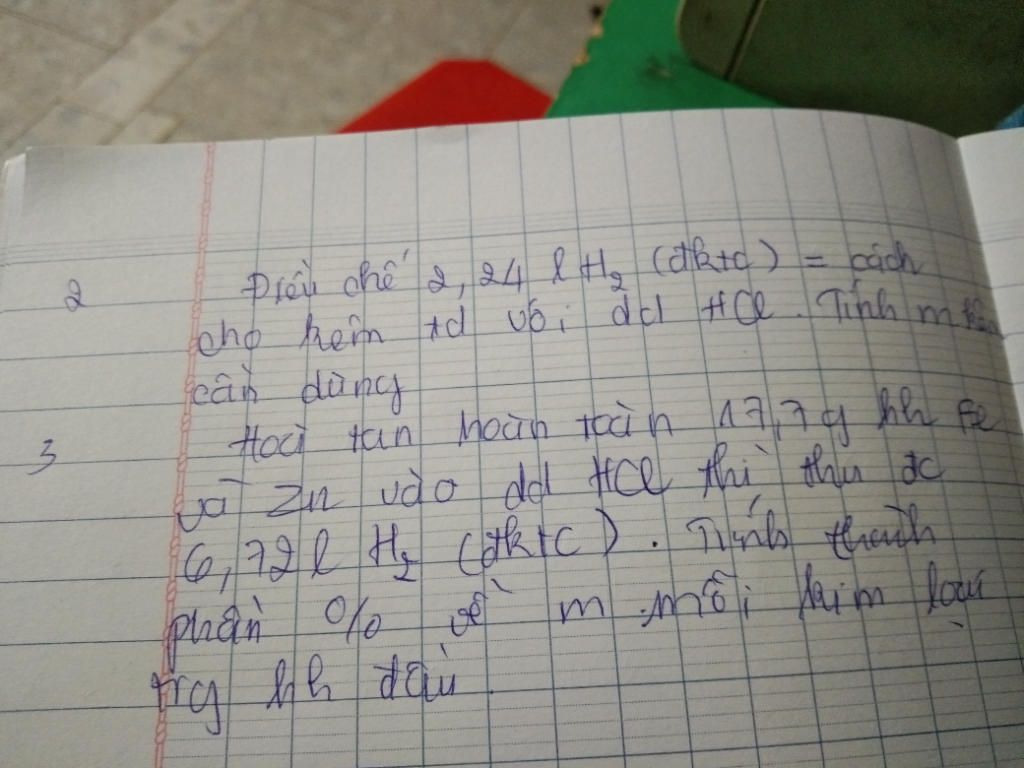 2 Điều chế 2,24 l H₂ (đktc) = cách
cho kẽm td với dd HCl. Tính m kẽm
cần dùng
3 Hoà tan hoàn toàn 17,7g hh Fe
và Zn vào dd HCl thì thu đc
6,72 l H₂ (đktc). Tính thành
phần % về m mỗi kim loại
trg hh đầu.